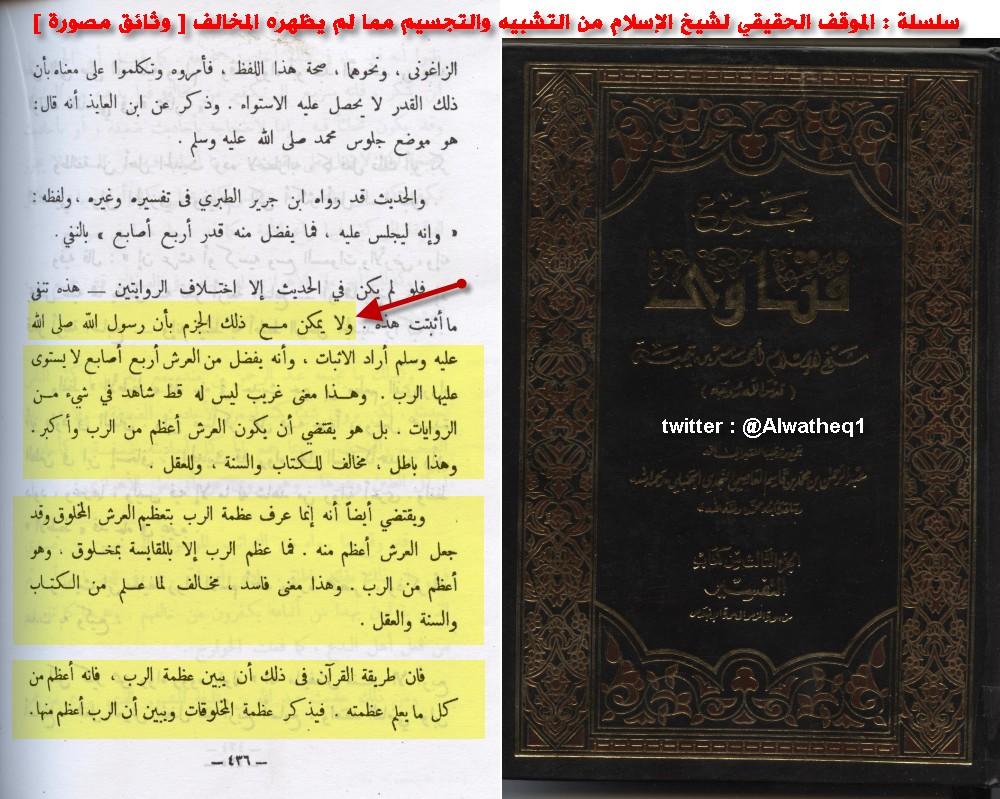 سلسلة : الموقف الحقيقي لشيخ الإسلام من التشبيه والتجسيم مما لم يظهره المخالف [ وثائق مصورة ]
الزاغونى ، ونحوها ، صحة هذا اللفظ ، فأمروه وتكلموا على معناه بأن
ذلك القدر لا يحصل عليه الاستواء . وذكر عن ابن العايذ أنه قال :
هو موضع جلوس محمد صلى الله عليه وسلم .
والحديث قد رواه ابن جرير الطبري فى تفسيره وغيره ، ولفظه :
« وإنه ليجلس عليه ، فما يفضل منه قدر أربع أصابع » بالنفي .
فلو لم يكن في الحديث إلا اختلاف الروايتين — هذه تنفى
ما أثبتت هذه . ولا يمكن مع ذلك الجزم بأن رسول الله صلى الله
عليه وسلم أراد الاثبات ، وأنه يفضل من العرش أربع أصابع لا يستوى
عليها الرب . وهذا معنى غريب ليس له قط شاهد في شيء من
الروايات . بل هو يقتضي أن يكون العرش أعظم من الرب وأكبر .
وهذا باطل ، مخالف للكتاب والسنة ، وللعقل .
ويقتضي أيضاً أنه إنما عرف عظمة الرب بتعظيم العرش المخلوق وقد
جعل العرش أعظم منه . فما عظم الرب إلا بالمقايسة بمخلوق ، وهو
أعظم من الرب . وهذا معنى فاسد ، مخالف لما علم من الكتاب
والسنة والعقل .
فان طريقة القرآن فى ذلك أن يبين عظمة الرب ، فانه أعظم من
كل ما يعلم عظمته . فيذكر عظمة المخلوقات ويبين أن الرب أعظم منها .
— ٤٣٦ —
مجموع
فتاوى
شيخ الإسلام أحمد بن تيمية
twitter : @Alwatheq1
التفسير